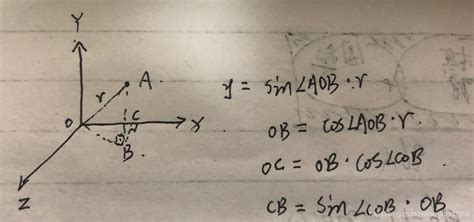 Y
A
r
O
C
X
B
Z
y = sin∠AOB · r
OB = cos∠AOB · r.
OC = OB · cos∠COB
CB = sin∠COB · OB